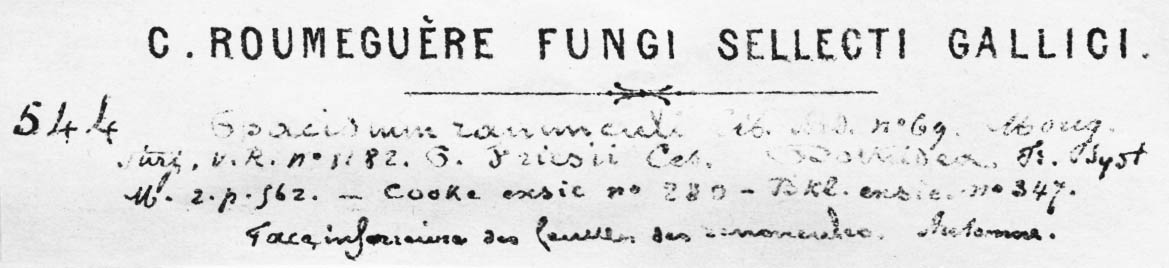 C. ROUMEGUÈRE FUNGI SELLECTI GALLICI.
544 ranunculi Lib. Ard. nº 69. Moug.
Stirp. V. R. nº 1182. G. Friesii Ces. Fr. Syst
M. 2. p. 562. — Cooke exsic nº 280 — Fckl. exsic. nº 347.
Face inférieure des feuilles des renoncules. Automne.